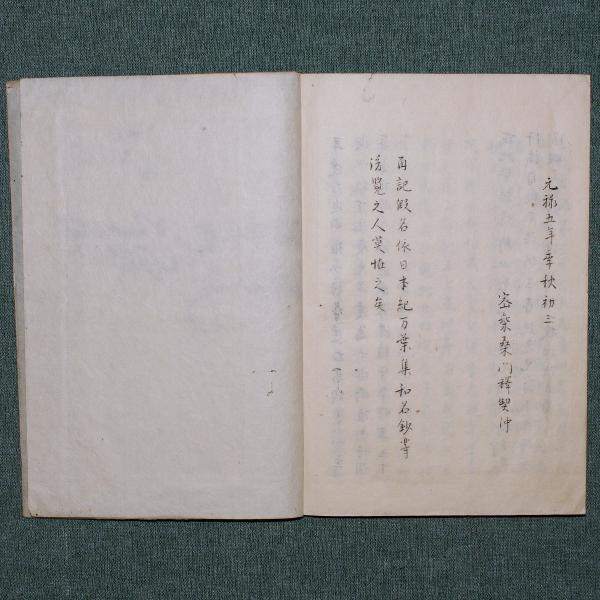 元禄五年季秋初三
密乗桑門釋契沖
再記假名依日本紀万葉集和名鈔等
後覧之人莫恠之矣